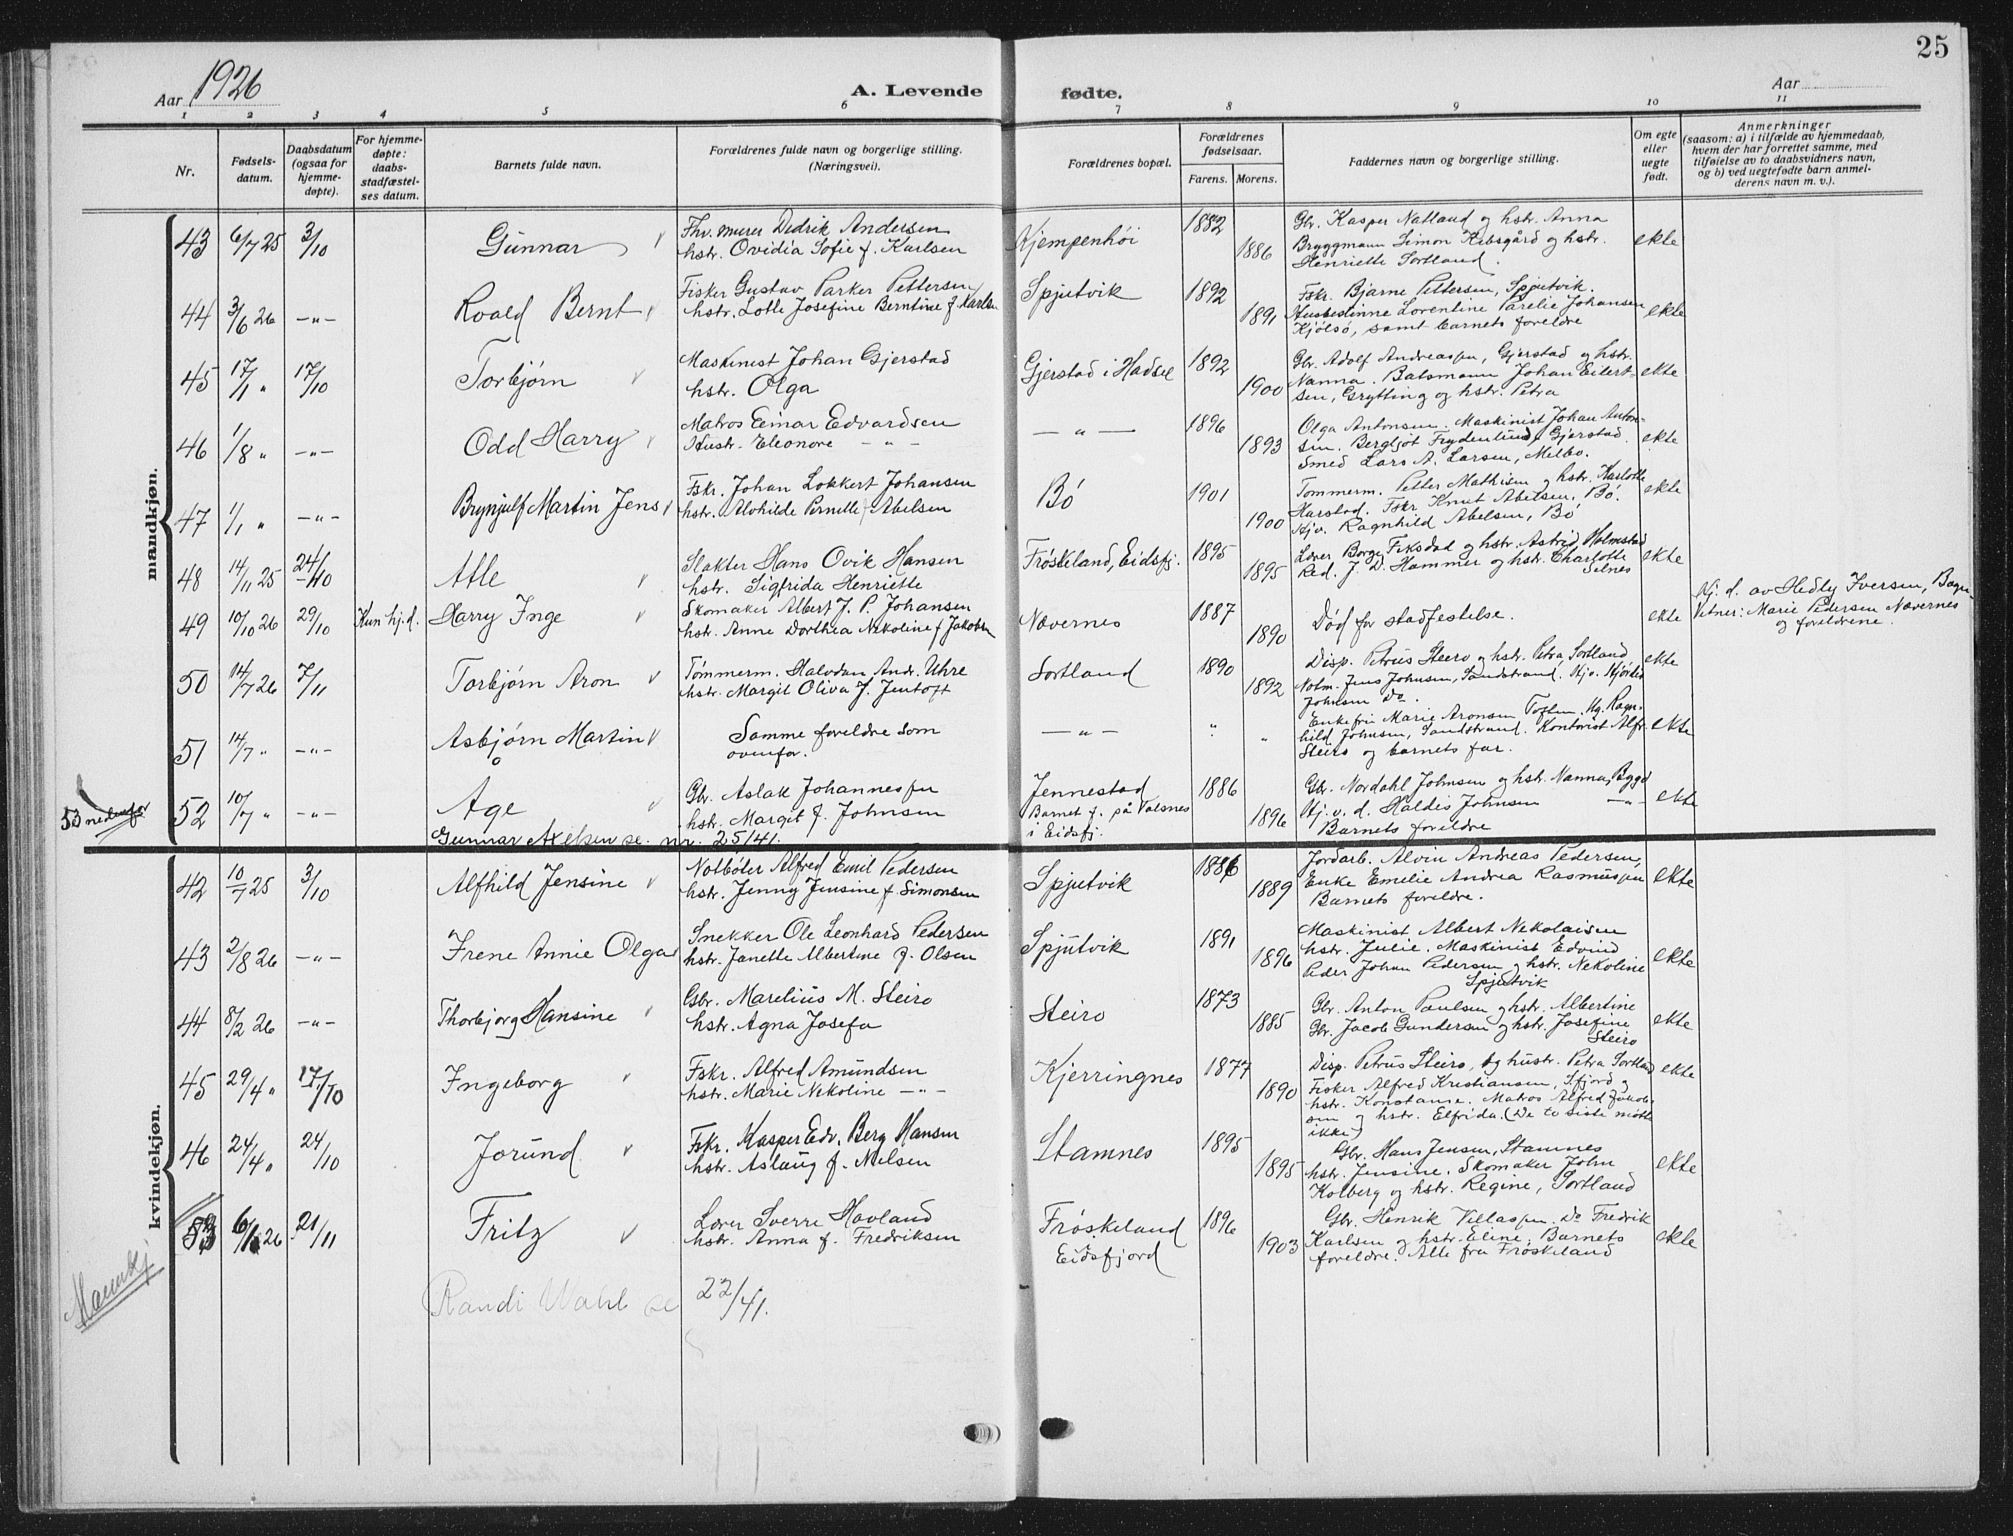 25
Aar 1926
A. Levende fødte.
Aar
1 2 3 4 5 6 7 8 9 10 11
Nr.
Fødsels-
datum.
Daabsdatum
(ogsaa for
hjemme-
døpte).
For hjemme-
døpte:
daabs-
stadfæstel-
ses datum.
Barnets fulde navn.
Forældrenes fulde navn og borgerlige stilling.
(Næringsvei).
Forældrenes bopæl.
Forældrenes
fødselsaar.
Farens. Morens.
Faddernes navn og borgerlige stilling.
Om egte
eller
uegte
født.
Anmerkninger
(saasom: a) i tilfælde av hjemmedaab,
hvem der har forrettet samme, med
tilføielse av to daabsvidners navn,
og b) ved uegtefødte barn anmel-
derens navn m. v.).
mandkjøn.
43 6/7 25 3/10 Gunnar
Fhv. murer Didrik Andersen
hstr. Ovidia Sofie f. Karlsen
Kjempenhøi 1882 1886
Gbr. Kasper Natland og hstr. Anna
Bryggmann Simon Kibsgård og hstr.
Henriette Sortland.
ekte
44 3/6 26 -"- Roald Bernt
Fisker Gustav Parker Pettersen
hstr. Lotte Josefine Berntine f. Karlsen
Spjutvik 1892 1891
Fskr. Bjarne Pettersen, Spjutvik.
Husbestinne Lorentine Parelie Johansen
Kjølsø, samt barnets foreldre
ekte
45 17/1 " 17/10 Torbjørn
Maskinist Johan Gjerstad
hstr. Olga
Gjerstad i Hadsel 1892 1900
Gbr. Adolf Andreassen, Gjerstad og hstr.
Nanna. Batsmann Johan Eilert-
sen, Grytting og hstr. Petra
ekte
46 1/8 " -"- Odd Harry
Matros Einar Edvardsen
Hustr. Eleonore - " -
- " - 1896 1893
Olga Antonsen. Maskinist Johan Anton-
sen. Bergljot Frydenlund, Gjerstad.
Smed Lars A. Larsen, Melbo.
ekte
47 1/1 " -"- Brynjulf Martin Jens
Fskr. Johan Lokkert Johansen
hstr. Alvhilde Pernelle f Abelsen
Bø 1901 1900
Tommerm. Petter Mathisen og hstr. Karlotte
Harstad. Fskr Knut Abelsen, Bø.
Hjv. Ragnhild Abelsen, Bø
ekte
48 14/11 25 24/10 Atle
Slakter Hans Ovik Hansen
hstr. Sigfrida Henriette
Frøskeland, Eidsfj. 1895 1895
Lærer Borge Fiksdal og hstr. Astrid Holmstad
Red. J. D. Hammer og hstr. Charlotte
Selnes
ekte
49 10/10 26 29/10 Kun hj.d. Harry Inge
Skomaker Albert J. P. Johansen
hstr. Anne Dorthea Nekoline f Jakobsen
Nævernes 1887 1890
Død før stadfestelse.
ekte
Hj. d. av Hedly Iversen,
Vitner: Marie Pedersen Nævernes
og foreldrene.
50 14/7 26 7/11 Torbjørn Aron
Tømmerm. Halvdan Andr. Uhre
hstr. Margit Oliva J. Jentoft
Sortland 1890 1892
Disp. Petrus Steiro og hstr. Petra, Sortland
Nolm. Jens Johnsen, Sandstrand. Hjv. Hjørdis
Johnsen Do.
ekte
51 14/7 " -"- Asbjørn Martin
Samme foreldre som
ovenfor.
- " - " "
Enkefru Marie Aronsen Toften. Ug. Ragn-
hild Johnsen, Sandstrand. Kontorist Alfr.
Steiro og barnets far.
ekte
53 nedenfor
52 10/7 " -"- Åge
Gbr. Aslak Johannessen
hstr. Margit f. Johnsen
Jennestad
Barnet f. på Valsnes
i Eidsfj.
1886 1896
Gbr. Nordahl Johnsen og hstr. Nanna, Bygd
Hj. v. d. Haldis Johnsen - " -
Barnets foreldre
ekte
Gunnar Axelsen se. nr. 25/41.
kvindekjøn.
42 10/7 25 3/10 Alfhild Jensine
Notbøter Alfred Emil Pedersen
hstr. Jenny Jensine f Simonsen
Spjutvik 1886 1889
Jordarb. Alvin Andreas Pedersen,
Enke Emelie Andrea Rasmussen
Barnets foreldre.
ekte
43 2/8 26 -"- Irene Annie Olga
Snekker Ole Leonhard Pedersen
hstr. Janette Albertine f. Olsen
Spjutvik 1891 1896
Maskinist Albert Nekolaisen
hstr. Julie. Maskinist Edvind
Peder Johan Pedersen og hstr. Nekoline
Spjutvik
ekte
44 8/2 26 -"- Thorbjørg Hansine
Gbr. Marelius M. Steiro
hstr. Agna Josefa
Steiro 1873 1885
Gbr. Anton Paulsen og hstr. Albertine
Gbr. Jacob Gundersen og hstr. Josefine
Steiro
ekte
45 29/4 " 17/10 Ingeborg
Fskr. Alfred Amundsen
hstr. Marie Nekoline - " -
Kjerringnes 1877 1890
Disp. Petrus Steiro, og hustr. Petra Sortland
Fisker Alfred Kristiansen, Sfjord og
hstr. Konstanse. Matros Alfred Jakob-
sen og hstr. Elfrida. (De to siste møtte
ikke)
ekte
46 24/4 " 24/10 Jorund
Fskr. Kasper Edv. Berg Hansen
hstr. Aslaug f. Nilsen
Stamnes 1895 1895
Gbr. Hans Jensen, Stamnes
hstr. Jensine. Skomaker John
Kolberg og hstr. Regine, Sortland
ekte
53 6/1 26 21/11 Fritz
Lærer Sverre Hovland
hstr. Anna f. Fredriksen
Frøskeland
Eidsfjord
1896 1903
Gbr. Henrik Villassen. Do Fredrik
Karlsen og hstr. Eline; Barnets
foreldre. Alle fra Frøskeland
ekte
Mannkj
Randi Wahl se 22/41.